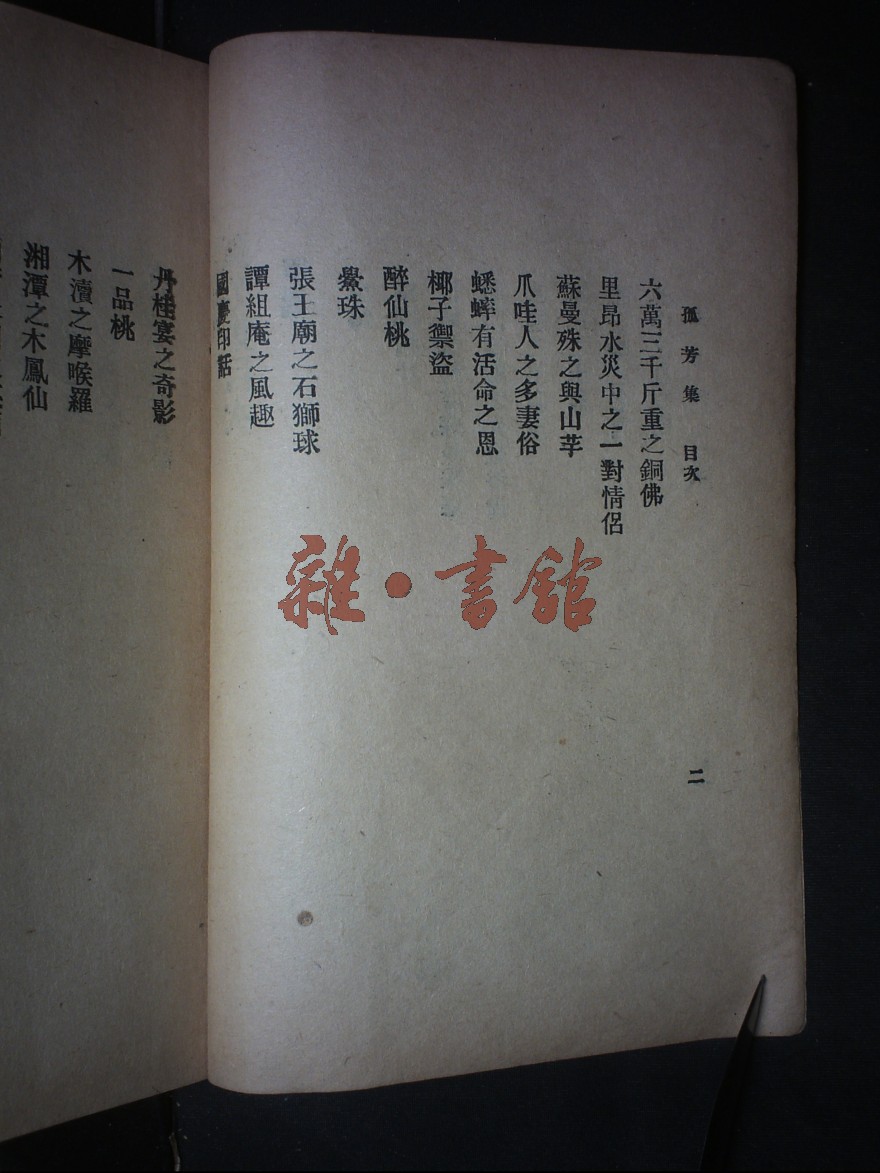 孤芳集　目次
二
六萬三千斤重之銅佛
里昂水災中之一對情侶
蘇曼殊之與山芋
爪哇人之多妻俗
蟋蟀有活命之恩
椰子禦盜
醉仙桃
鱟珠
張王廟之石獅球
譚組庵之風趣
國慶印話
丹桂宴之奇影
一品桃
木瀆之摩喉羅
湘潭之木鳳仙
雜·書館